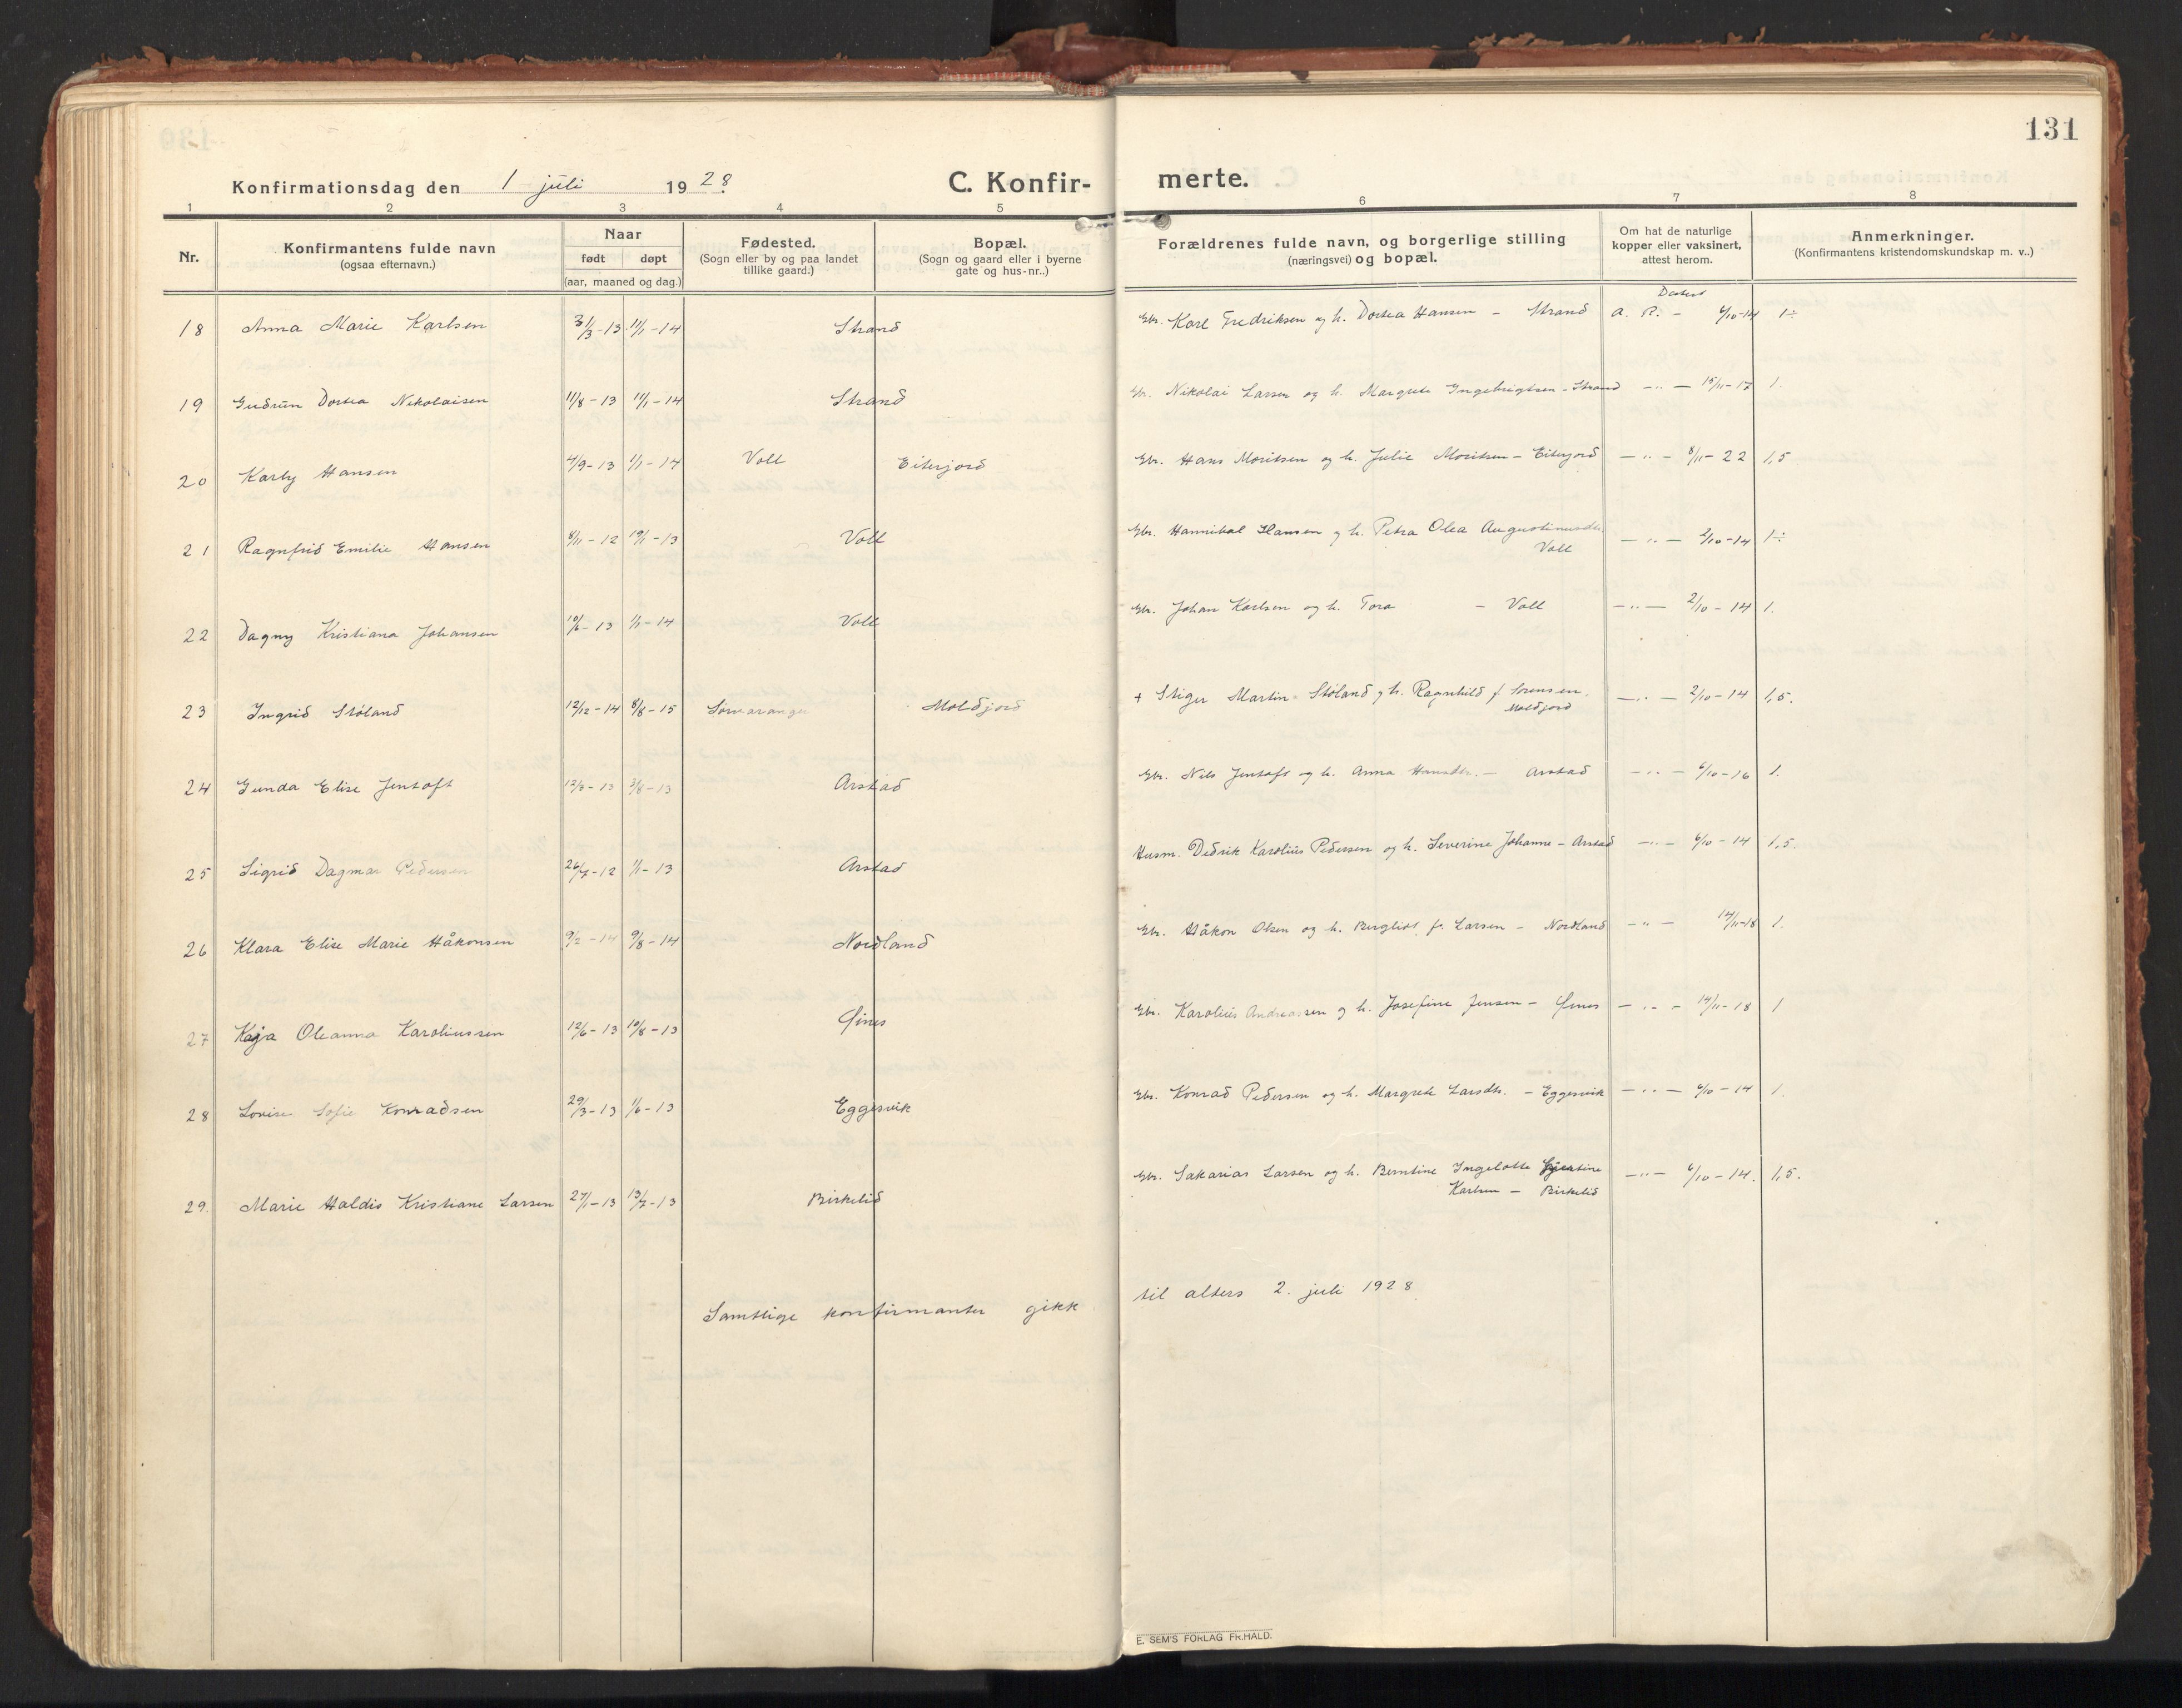 131
Konfirmationsdag den 1 juli 1928.
C. Konfir- merte.
1 2 3 4 5 6 7 8
Nr. Konfirmantens fulde navn (ogsaa efternavn.) Naar født døpt (aar, maaned og dag.) Fødested. (Sogn eller by og paa landet tillike gaard.) Bopæl. (Sogn og gaard eller i byerne gate og hus-nr..) Forældrenes fulde navn, og borgerlige stilling (næringsvei) og bopæl. Om hat de naturlige kopper eller vaksinert, attest herom. Anmerkninger. (Konfirmantens kristendomskundskap m. v..)
18 Anna Marie Karlsen 31/3-13 11/1-14 Strand Gbr. Karl Fredriksen og h. Dortea Hansen - Strand a. R. - 6/10-14 1÷
19 Gudrun Dortea Nikolaisen 11/8-13 11/1-14 Strand Gbr. Nikolai Larsen og h. Margrete Ingebrigtsen - Strand -"- 15/11-17 1.
20 Karly Hansen 4/9-13 1/1-14 Voll Eiterjord Gbr. Hans Moritsen og h. Julie Moritsen - Eiterjord -"- 8/11-22 1,5
21 Ragnfrid Emilie Hansen 8/11-12 19/1-13 Voll Gbr. Hannibal Hansen og h. Petra Olea Augustinusdtr.
Voll -"- 2/10-14 1÷
22 Dagny Kristiana Johansen 10/6-13 1/1-14 Voll Gbr. Johan Karlsen og h. Tora - Voll -"- 2/10-14 1.
23 Ingrid Støland 12/12-14 8/8-15 Sørvaranger Moldjord + Stiger Martin Støland og h. Ragnhild f. Sørensen.
Moldjord -"- 2/10-14 1,5.
24 Gunda Elise Jentoft 12/3-13 3/8-13 Arstad Gbr. Nils Jentoft og h. Anna Hansdtr. - Arstad -"- 6/10-16 1.
25 Sigrid Dagmar Pedersen 26/7-12 1/1-13 Arstad Husm. Dedrik Karolius Pedersen og h. Severine Johanne - Arstad -"- 6/10-14 1,5.
26 Klara Elise Marie Håkonsen 9/2-14 9/8-14 Nordland Gbr. Håkon Olsen og h. Bergliot f. Larsen - Nordland -"- 14/11-18 1.
27 Kaja Oleanna Karoliussen 12/6-13 10/8-13 Øines Gbr. Karolius Andreassen og h. Josefine Jensen - Øines -"- 14/11-18 1
28 Lovise Sofie Konradsen 29/3-13 1/6-13 Eggesvik Gbr. Konrad Pedersen og h. Margrete Larsdtr. - Eggesvik -"- 6/10-14 1.
29. Marie Haldis Kristiane Larsen 27/1-13 13/7-13 Birkelid Gbr. Sakarias Larsen og h. Berntine Ingelotte
Karlsen - Birkelid -"- 6/10-14. 1,5.
Samtlige konfirmanter gikk til alters 2. juli 1928.
E. SEM'S FORLAG FR.HALD.